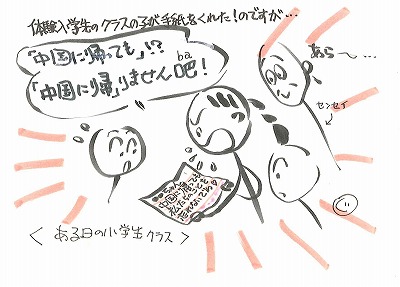 体験入学生のクラスの子が手紙をくれた!のですが…
「中国に帰っても」!?
ba
「中国に帰」りません吧!
あら〜…
センセイ
中国に帰っても
<ある日の小学生クラス>